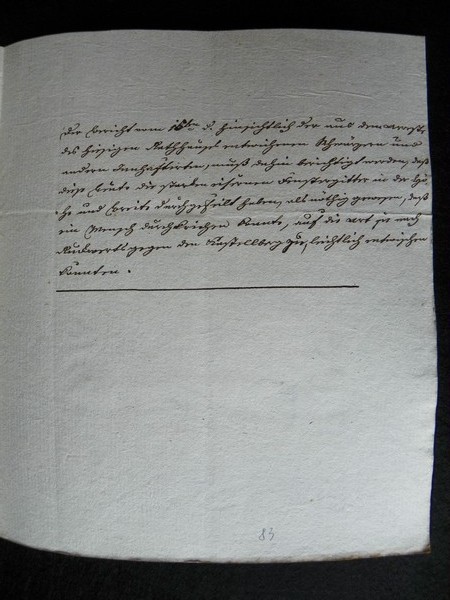 Der Bericht vom 16ten d. hinsichtlich der aus dem Arreste
des hiesigen Rathhauses entwichenen Schwärzern und
andern Inhaftirten, muß dahin berichtigt werden, daß
diese Leute die starken eisernen Fenstergitter in der Hö-
he und breite durchgefeilt haben, als nöthig gewesen, daß
ein Mensch durchkriechen konnte, auf die Art sie nach
Rückwerts gegen den Kastellberg zu, leichtlich entweichen
konnten.
83